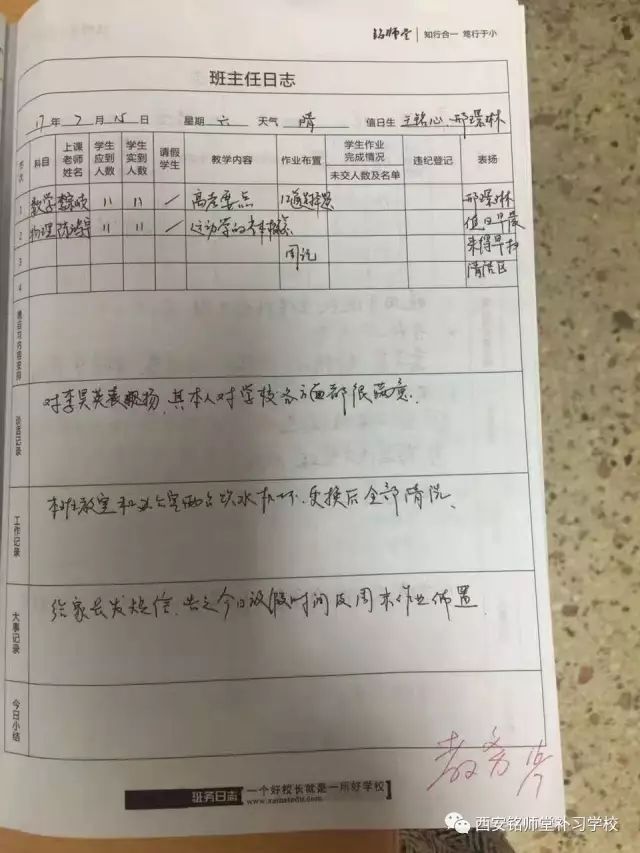 铭师堂 | 知行合一 笃行于小
班主任日志
17 年 7 月 15 日 星期 六 天气 晴 值日生 王铭心、邢璟琳
节次 科目 上课老师姓名 学生应到人数 学生实到人数 请假学生 教学内容 作业布置 学生作业完成情况 未交人数及名单 违纪登记 表扬
1 数学 11 11 / 高考要点 邢璟琳
2 物理 11 11 / 运动学的基本概念 值日早最
3 周记 来得早扫
4 清洁区
晚自习内容安排
谈话记录
对李昊英表扬,其本人对学校各方面都很满意.
工作记录
本班教室和办公室两台饮水机坏,更换后全部清洗、
大事记录
给家长发短信,告之今日放假时间及周末作业布置
今日小结
教务
班务日志 一个好校长就是一所好学校
西安铭师堂补习学校